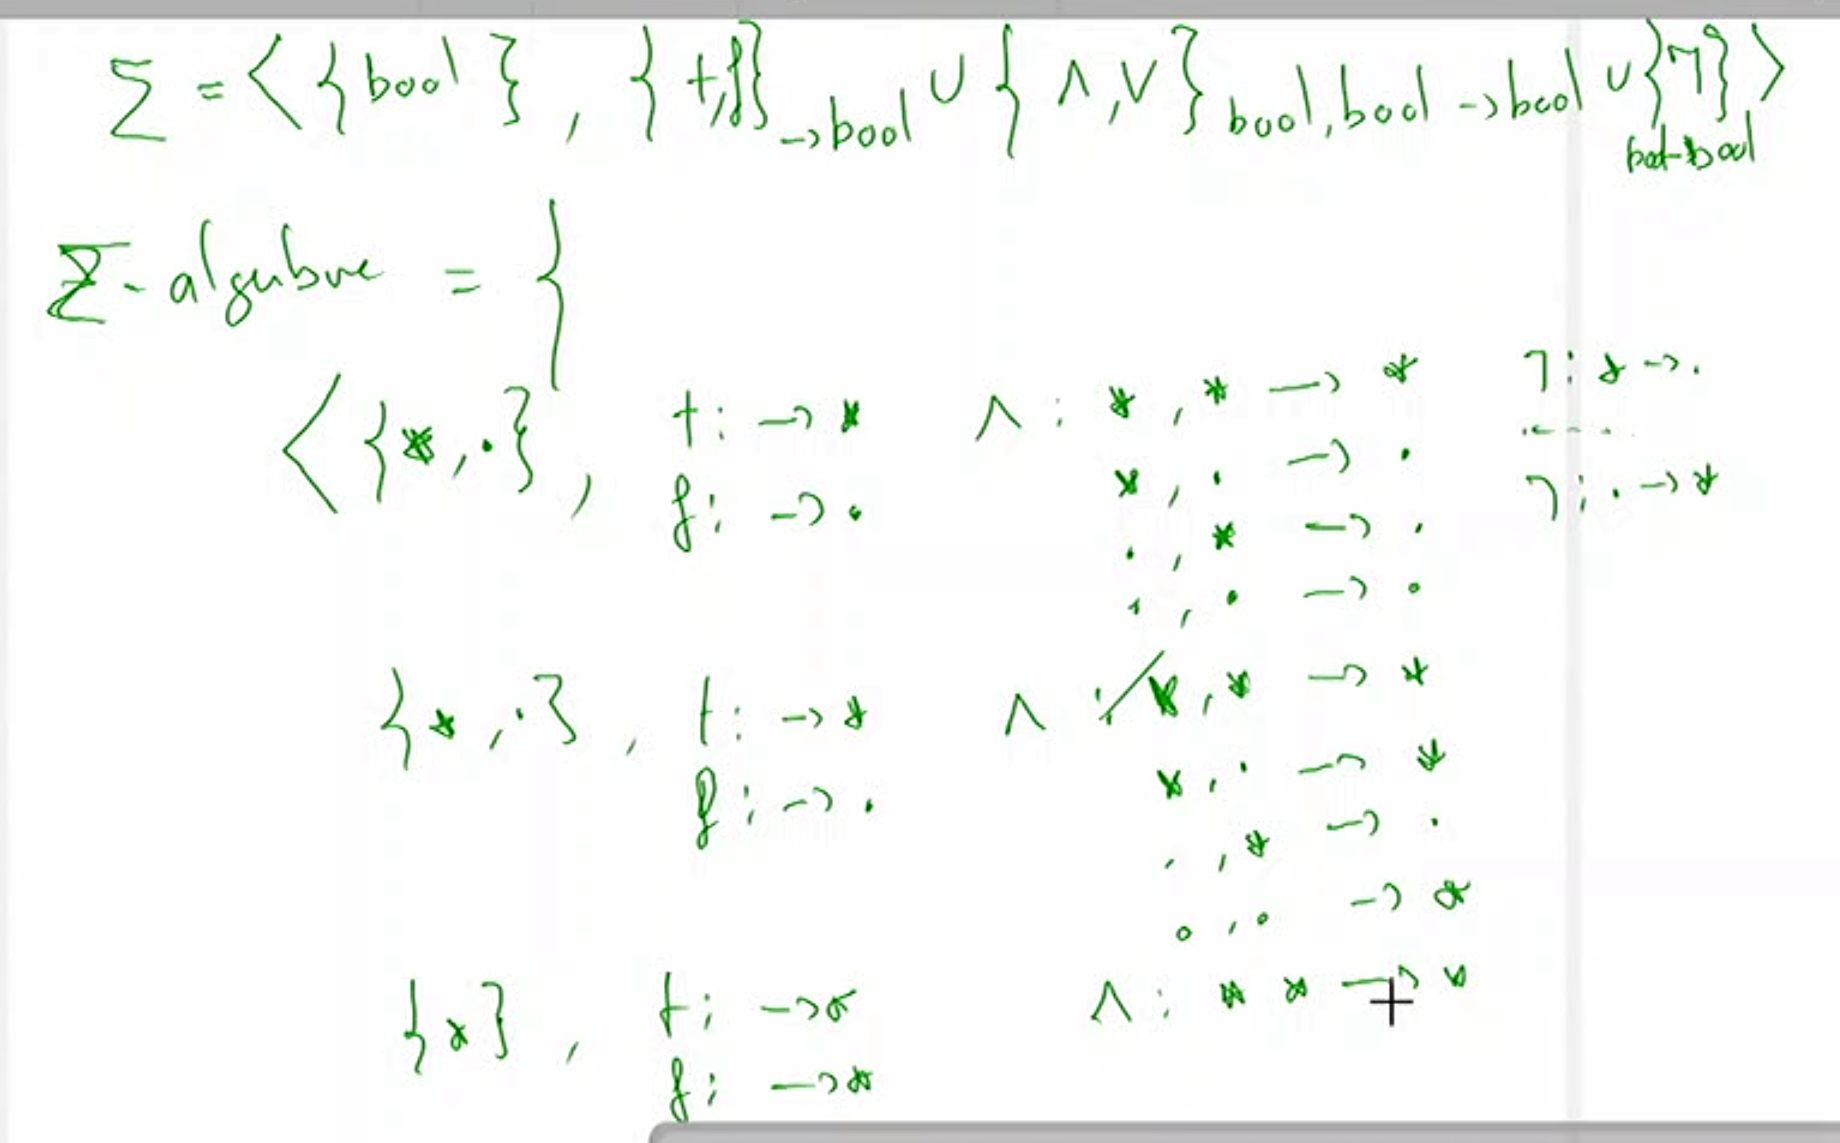 Σ = < { bool } , { t, f } → bool ∪ { ∧, ∨ } bool, bool → bool ∪ { ¬ } >
bool → bool
Σ - algebre = {
< { *, · } , t : → * ∧ : * , * → * ¬ : * → ·
f : → · * , · → · ¬ : · → *
· , * → ·
· , · → ·
{ *, · } , t : → * ∧ : * , * → *
* , · → *
f : → · · , * → ·
· , · → *
{ * } , t : → * ∧ : * * → *
f : → *